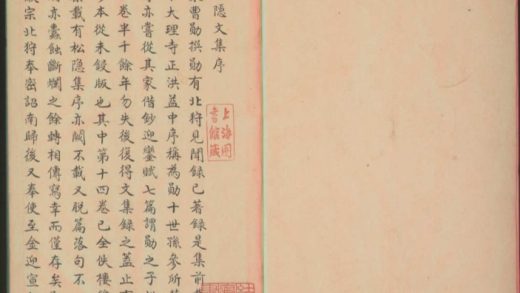 隱文集序
集曹勛撰勛有北狩見聞錄已著錄是集前
大理寺正洪益中序稱為勛十世孫參所
亦嘗從其家借鈔迎鑾賦七篇謂勛之子
卷半十餘年勿失後復得文集錄之蓋止
本從未鋟版也其中第十四卷已全佚樓
載有松隱集序亦闕不載又脫篇落句不
亦蠹蝕斷爛之餘轉相傳寫幸而僅存矣
宗北狩奉密詔南歸後又奉使至金迎宣
上海圖
書館藏